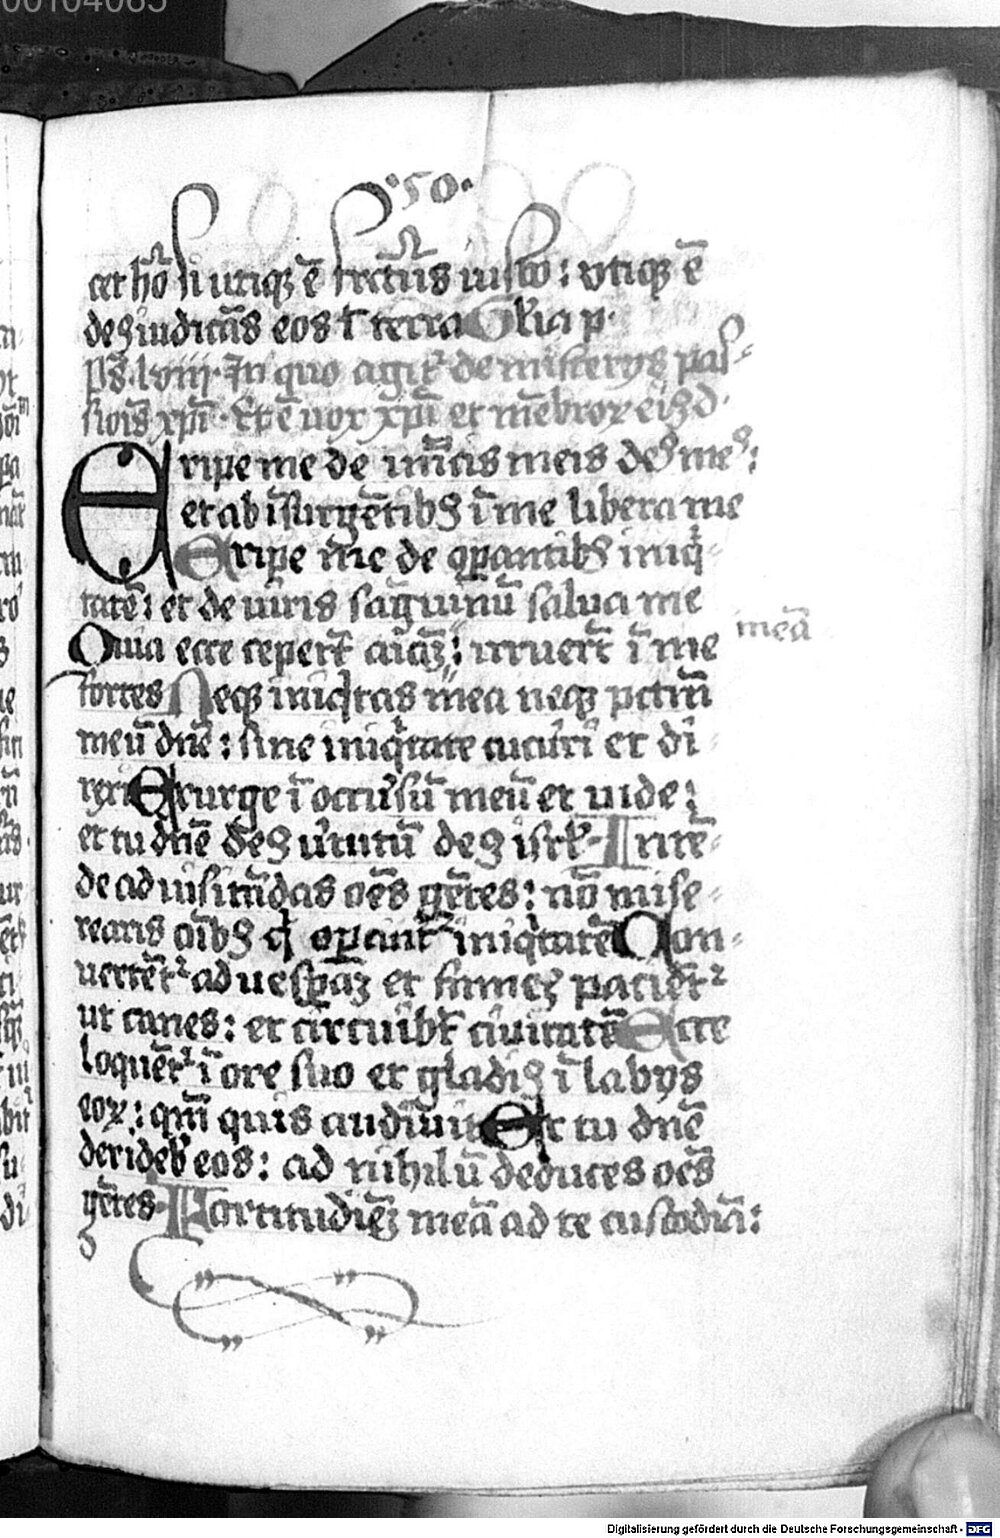 00104065
·50·
cet hō si utiq₃ ē fructus iusto: vtiq₃ ē
deꝰ iudicās eos ī terra Gl̄ia p·
Ps̄ lviij· In quo agit᷑ de misterijs pas-
siōis xp̄i· Et ē uox xp̄i et mēbroꝝ eiꝰd·
Eripe me de inīcis meis deꝰ meꝰ:
et ab īsurgētibꝰ ī me libera me
Eripe me de oꝑantibꝰ iniq̇-
tatē: et de uiris sāguinū salua me
Quia ecce ceper̄t aīaꝫ: irruer̄t ī me
meā
fortes Neq₃ iniq̇tas mea neq₃ pctm̄
meū dn̄e: sine iniq̇tate cucurri et di
rexi Exurge ī occursū meū et uide:
et tu dn̄e deꝰ uirtutū deꝰ isrl· Intē-
de ad uisitādas oēs gētes: nō mise-
rearis oīb₃ q̇ oꝑant᷑ iniq̇tatē Con-
uertēt᷑ ad uesꝑaꝫ et fameꝫ paciēt᷑
ut canes: et circuibt̄ ciuitatē Ecce
loquēt᷑ ī ore suo et gladiꝰ ī labijs
eoꝝ: qm̄ quis audiuit Et tu dn̄e
deridebꝰ eos: ad nihilū deduces oēs
gētes· Fortitudīeꝫ meā ad te custodiā:
Digitalisierung gefördert durch die Deutsche Forschungsgemeinschaft - DFG